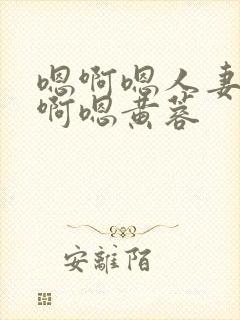 嗯啊嗯人妻
啊嗯黄蓉
安離陌